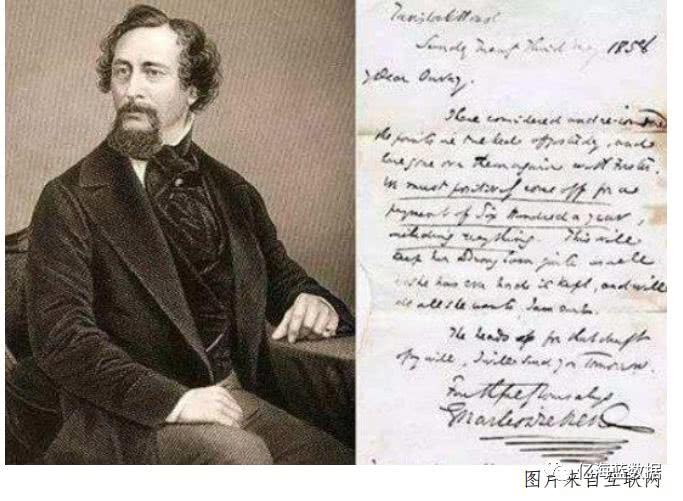 Tavistock House
Sunday Twenty Third May 1858
My Dear Ouvry,
I have considered and
the points in and
have gone over them again with Forster.
We must positively come off for a
payment of Six Hundred a year,
including everything. This will
keep her as well
as she has ever had it kept, and will
do all she wants, I am sure.
The heads for that draft
of my will, I will send you tomorrow.
Faithfully Yours always
Charles Dickens
亿海蓝数据
图片来自互联网